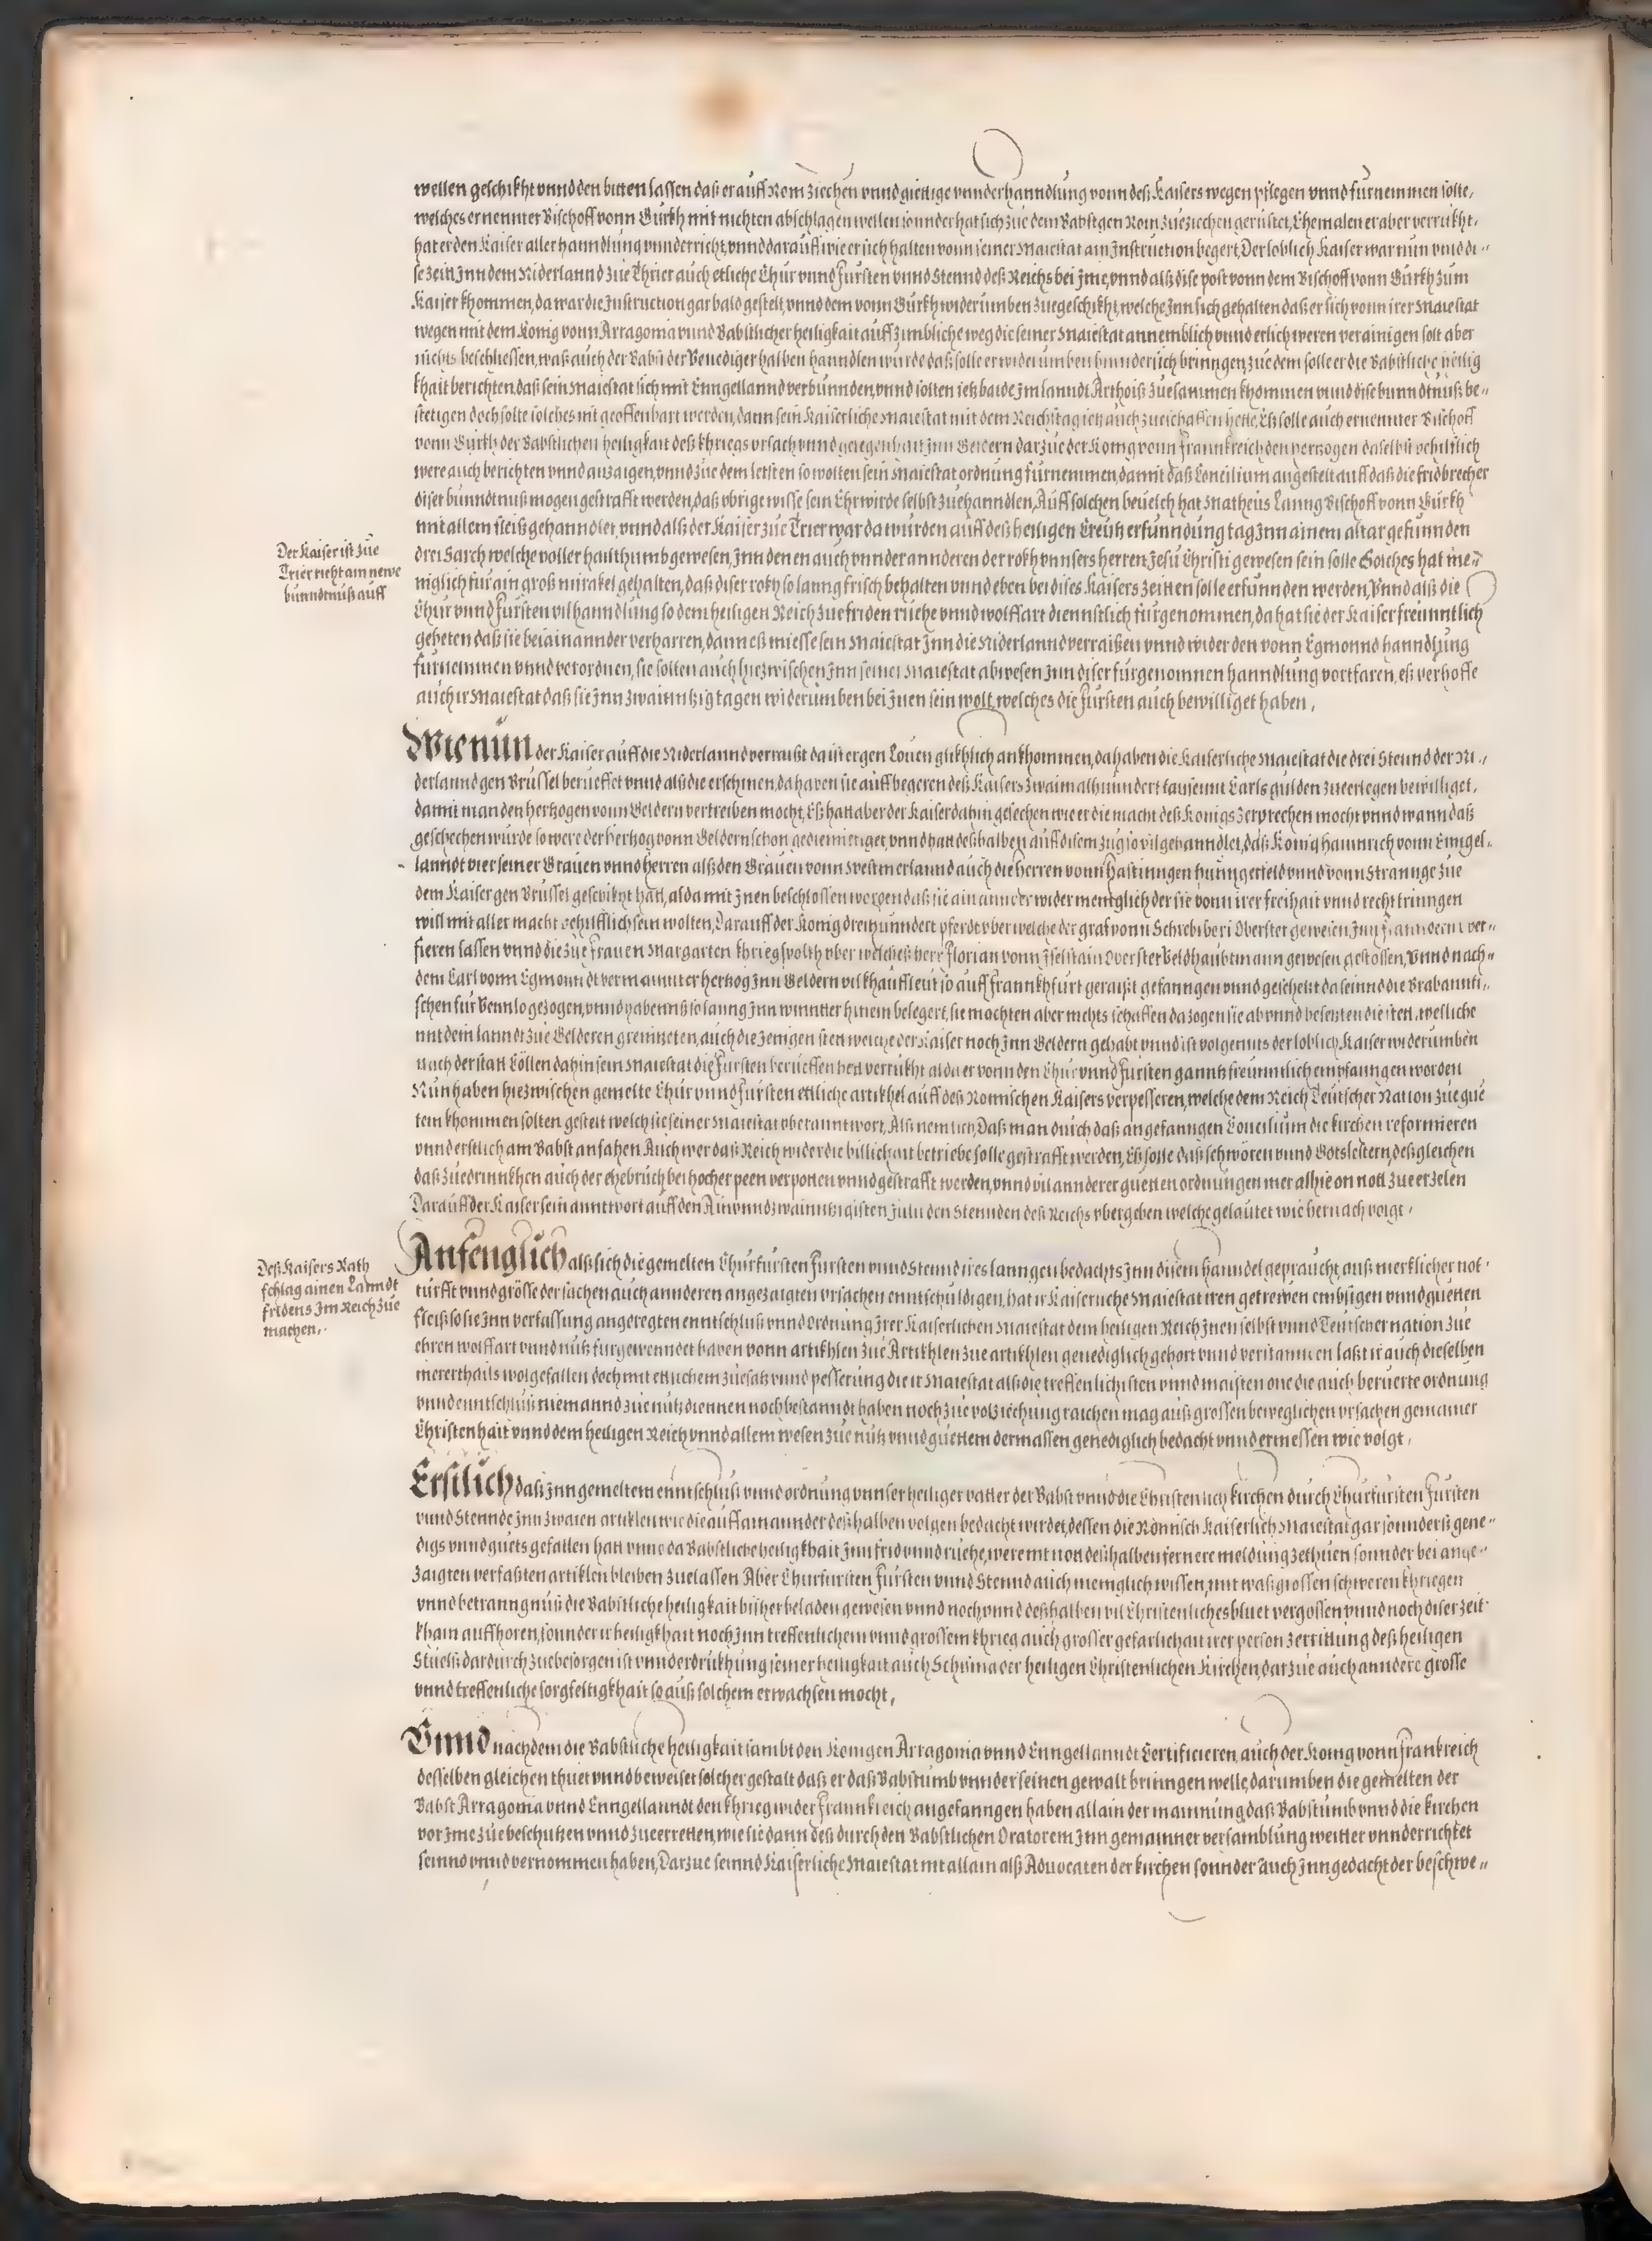 wellen geschikht vnnd den bitten lassen daß er auff Rom ziechen vnnd giettige vnnderhanndlung vonn deß Kaisers wegen pflegen vnnd fürnemmen solte,
welches ernennter Bischoff vonn Gürkh mit nichten abschlagen wellen sonnder hat sich zúe dem Babst gen Rom zúeziechen gerüstet, Ehemalen er aber verrukht,
hat er den Kaiser aller hanndlúng vnnderricht, vnnd darauff wie er sich halten vonn seiner Maiestat ain Instruction begert, Der loblich Kaiser war nun vmb di-
se zeit Inn dem Niderlannd zúe Thrier auch etliche Chur vnnd Fürsten vnnd Stennd deß Reichs bei Ime, vnnd alß dise post vonn dem Bischoff vonn Gürkh zum
Kaiser khommen, da war die Instruction gar bald gestelt, vnnd dem vonn Gürkh widerumben zúegeschikht, welche Inn sich gehalten daß er sich vonn irer Maiestat
wegen mit dem König vonn Arragonia vnnd Babstlicher heiligkait auff zimbliche weg die seiner Maiestat annemblich vnnd erlich weren verainigen solt aber
nichts beschliessen, waß auch der Babst der Venediger halben hanndlen würde daß solle er widerumben hinndersich bringen, zúe dem solle er die Babstliche heilig
khait berichten daß sein Maiestat sich mit Enngellannd verbunnden, vnnd solten ietz baide Im lanndt Arthois zúesammen khommen vnnd dise bunndtnúß be-
stetigen doch solte solches nit geoffenbart werden, dann sein Kaiserliche Maiestat mit dem Reichstag ietz auch zúeschaffen hette, Eß solle auch ernennter Bischoff
vonn Gürkh der Babstlichen heiligkait deß khriegs vrsach vnnd gelegenhait Inn Geldern darzúe der König vonn Frannkreich den herzogen daselbst behilflich
were auch berichten vnnd anzaigen, vnnd zúe dem letsten so wolten sein Maiestat ordnung fürnemmen, damit daß Concilium angestelt auff daß die fridbrecher
diser bunndtnuß mogen gestrafft werden, daß vbrige wisse sein Ehrwirde selbst zúehanndlen, Auff solchen beuelch hat Matheus Lanng Bischoff vonn Gürkh
mit allem fleiß gehanndlet, vnnd alß der Kaiser zúe Trier war da würden auff deß heiligen Creütz erfunndung tag Inn ainem altar gefunnden
Der Kaiser ist zúe
Trier richt ain newe
bunndtnuß auff
drei Sarch welche voller hailthumb gewesen, Inn denen auch vnnder annderen der rokh vnnsers herren Jesu Christi gewesen sein solle Solches hat me-
niglich für ain groß mirakel gehalten, daß diser rokh so lanng frisch behalten vnnd eben bei dises Kaisers zeitten solle erfunnden werden, Vnnd alß die
Chur vnnd Fürsten vil hanndlung so dem heiligen Reich zúe friden rúche vnnd wolffart diennstlich fürgenommen, da hat sie der Kaiser freünntlich
gebeten daß sie bei ainannder verharren, dann eß miesse sein Maiestat Inn die Niderlannd verraißen vnnd wider den vonn Egmonnd hanndlung
fürnemmen vnnd verordnen, sie sollen auch hiezwischen Inn seiner Maiestat abwesen Inn diser fürgenomnen hanndlung vortfaren, eß verhoffe
auch ir Maiestat daß sie Inn zwainntzig tagen widerumben bei Inen sein wolt, welches die Fürsten auch bewilliget haben,
Wie nun der Kaiser auff die Niderlannd verraist da ist er gen Louen glikhlich ankhommen, da haben die Kaiserliche Maiestat die drei Stennd der Ni-
derlannd gen Brüssel berüeffet vnnd alß die erschinen, da haben sie auff begeren deß Kaisers zwaimalhunndert tausennt Carls gulden zúeerlegen bewilliget,
damit man den hertzogen vonn Geldern vertreiben mocht, Eß hatt aber der Kaiser dahin gesechen wie er die macht deß Königs zerprechen mocht vnnd wann daß
geschechen würde so were der hertzog vonn Geldern schon gediemietiget, vnnd hatt deßhalben auff disem zug so vil gehanndlet, daß König Hainrich vonn Enngel-
lanndt vier seiner Grauen vnnd herren alß den Grauen vonn Westmerlannd auch die herren vonn Hastinngen Huntgerfeld vnnd vonn Strannge zúe
dem Kaiser gen Brüssel geschikht hatt, alda mit Inen beschlossen worden daß sie ainannder wider meniglich der sie vonn irer freihait vnnd recht tringen
will mit aller macht behilfflich sein wolten, Darauff der König dreitzunndert pferdt vber welche der graf vonn Schrebiberi Oberster gewesen Inn Flanndern ver-
fieren lassen vnnd die zúe Frauen Margarten khriegsvolkh vber welches herr Florian vonn Iselstain Oberster Veldhaubtmann gewesen gestossen, Vnnd nach-
dem Carl vonn Egmonndt vermainnter hertzog Inn Geldern vil khauffleut so auff Frannkhfurt geraist gefanngen vnnd geschetzt da seinnd die Brabannti-
schen für Vennlo gezogen, vnnd habenns so lanng Inn wintter hinein belegert, sie mochten aber nichts schaffen da zogen sie ab vnnd besetzten die stett, welliche
mit dem lanndt zúe Gelderen grenntzeten, auch die Jenigen stett welche der Kaiser noch Inn Geldern gehabt vnnd ist volgennts der loblich Kaiser widerumben
nach der statt Cöllen dahin sein Maiestat die Fürsten berueffen hett verrukht alda er vonn den Chur vnnd Fürsten ganntz freünntlich empfanngen worden
Nun haben hiezwischen gemelte Chur vnnd Fürsten ettliche artikhel auff deß Romischen Kaisers verpesseren, welche dem Reich Teutscher Nation zúe gue
tem khommen solten gestelt welch sie seiner Maiestat vberanntwort, Alß nemlich, Daß man durch daß angefanngen Concilium die kirchen reformieren
vnnd erstlich am Babst anfahen Auch wer daß Reich wider die billichait betriebe solle gestrafft werden, Eß solle daß schwören vnnd Gotslestern, desgleichen
daß zúedrinnkhen auch der ehebrúch bei hocher peen verpotten vnnd gestrafft werden, vnnd vil annderer guetten ordnungen mer alhie on nott zúe erzelen
Darauff der Kaiser sein anntwort auff den Ain vnnd zwainntzigisten Julii den Stennden deß Reichs vbergeben welche gelautet wie hernach volgt,
Deß Kaisers Rath
schlag ainen Lanndt
fridens Im Reich zúe
machen,
Anfenglich alß sich die gemelten Churfürsten Fürsten vnnd Stennd ires lanngen bedachts Inn disem hanndel gepraucht, auß merklicher not-
türfft vnnd grösse der sachen auch annderen angezaigten vrsachen enntschuldigen, hat ir Kaiserliche Maiestat iren getrewen embsigen vnnd guetten
fleiß so sie Inn verfassung angeregten enntschluß vnnd ordnung Irer Kaiserlichen Maiestat dem heiligen Reich Inen selbst vnnd Teutscher nation zúe
ehren wolffart vnnd nutz fürgewenndet haben vonn artikhlen zúe Artikhlen zúe artikhlen genediglich gehört vnnd verstannden laßt ir auch dieselben
merertheils wolgefallen doch mit ettlichem zúesatz vnnd pesserúng die ir Maiestat alß die treffenlichisten vnnd maisten one die auch beruerte ordnúng
vnnd enntschluß niemannd zúe nutz diennen noch bestanndt haben noch zúe volziechung raichen mag auß grossen beweglichen vrsachen gemainer
Christenhait vnnd dem heiligen Reich vnnd allem wesen zúe nutz vnnd guettem dermassen genediglich bedacht vnnd ermessen wie volgt,
Erstlich daß Inn gemeltem enntschluß vnnd ordnung vnnser heiliger vatter der Babst vnnd die Christenlich kirchen durch Churfürsten Fürsten
vnnd Stennde Inn zwaien artiklen wie die auff ainannder deßhalben volgen bedacht wirdet, dessen die Römisch Kaiserlich Maiestat gar sonnders gene-
digs vnnd guets gefallen hatt vnnd da Babstliche heiligkhait Inn frid vnnd rúche, were nit nott deßhalben fernere meldung zethúen sonnder bei ange-
zaigten verfaßten artiklen bleiben zúelassen Aber Churfürsten Fürsten vnnd Stennd auch meniglich wissen, mit waß grossen schweren khriegen
vnnd betranngnuß die Babstliche heiligkait bisher beladen gewesen vnnd noch, vnnd deßhalben vil Christenliches bluet vergossen vnnd noch diser zeit
khain auffhören, sonnder ir heiligkhait noch Inn treffenlichem vnnd grossem khrieg auch grosser gefarlichait irer person zerrittung deß heiligen
Stuels dardurch zúebesorgen ist vnnderdrükhung seiner heiligkait auch Schisma der heiligen Christenlichen Kirchen, darzúe auch anndere grosse
vnnd treffenliche sorgfeltigkhait so auß solchem erwachsen mocht,
Vnnd nachdem die Babstliche heiligkait sambt den Königen Arragonia vnnd Enngellanndt Certificieren, auch der König vonn Frankreich
desselben gleichen thuet vnnd beweiset solcher gestalt daß er daß Babstumb vnnder seinen gewalt bringen welle, darumben die gemelten der
Babst Arragonia vnnd Enngellanndt den khrieg wider Frannkreich angefanngen haben allain der mainnúng daß Babstumb vnnd die kirchen
vor Ime zúe beschutzen vnnd zúeerretten, wie sie dann deß durch den Babstlichen Oratorem Inn gemainner versamblúng weitter vnnderrichtet
seinnd vnnd vernommen haben, Darzue seinnd Kaiserliche Maiestat nit allain alß Aduocaten der kirchen sonnder auch Inngedacht der beschwe-